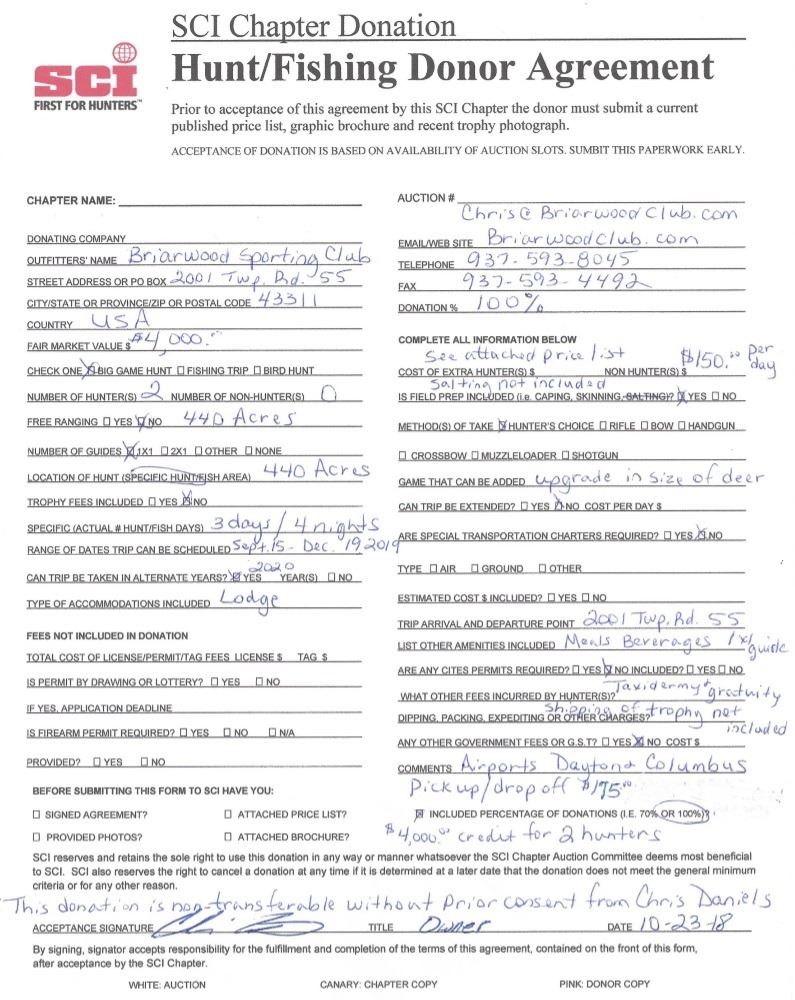 SCI Chapter Donation
Hunt/Fishing Donor Agreement
SCI
FIRST FOR HUNTERS™
Prior to acceptance of this agreement by this SCI Chapter the donor must submit a current
published price list, graphic brochure and recent trophy photograph.
ACCEPTANCE OF DONATION IS BASED ON AVAILABILITY OF AUCTION SLOTS. SUMBIT THIS PAPERWORK EARLY.
CHAPTER NAME:
DONATING COMPANY
OUTFITTERS' NAME Briarwood Sporting Club
STREET ADDRESS OR PO BOX 2001 Twp. Rd. 55
CITY/STATE OR PROVINCE/ZIP OR POSTAL CODE 43311
COUNTRY USA
FAIR MARKET VALUE $ $4,000.00
CHECK ONE ☒ BIG GAME HUNT ☐ FISHING TRIP ☐ BIRD HUNT
NUMBER OF HUNTER(S) 2 NUMBER OF NON-HUNTER(S) 0
FREE RANGING ☐ YES ☒ NO 440 Acres
NUMBER OF GUIDES ☒ 1X1 ☐ 2X1 ☐ OTHER ☐ NONE
LOCATION OF HUNT (SPECIFIC HUNT/FISH AREA) 440 Acres
TROPHY FEES INCLUDED ☐ YES ☒ NO
SPECIFIC (ACTUAL # HUNT/FISH DAYS) 3 days / 4 nights
RANGE OF DATES TRIP CAN BE SCHEDULED Sept. 15 - Dec. 19 2019
2020
CAN TRIP BE TAKEN IN ALTERNATE YEARS? ☒ YES YEAR(S) ☐ NO
TYPE OF ACCOMMODATIONS INCLUDED Lodge
FEES NOT INCLUDED IN DONATION
TOTAL COST OF LICENSE/PERMIT/TAG FEES LICENSE $ TAG $
IS PERMIT BY DRAWING OR LOTTERY? ☐ YES ☐ NO
IF YES, APPLICATION DEADLINE
IS FIREARM PERMIT REQUIRED? ☐ YES ☐ NO ☐ N/A
PROVIDED? ☐ YES ☐ NO
BEFORE SUBMITTING THIS FORM TO SCI HAVE YOU:
☐ SIGNED AGREEMENT? ☐ ATTACHED PRICE LIST?
☐ PROVIDED PHOTOS? ☐ ATTACHED BROCHURE?
AUCTION #
Chris@Briarwoodclub.com
EMAIL/WEB SITE Briarwoodclub.com
TELEPHONE 937-593-8045
FAX 937-593-4492
DONATION % 100%
COMPLETE ALL INFORMATION BELOW
See attached price list $150.00 Per day
COST OF EXTRA HUNTER(S) $ NON HUNTER(S) $
Salting not included
IS FIELD PREP INCLUDED (i.e. CAPING, SKINNING, SALTING)? ☒ YES ☐ NO
METHOD(S) OF TAKE ☒ HUNTER'S CHOICE ☐ RIFLE ☐ BOW ☐ HANDGUN
☐ CROSSBOW ☐ MUZZLELOADER ☐ SHOTGUN
GAME THAT CAN BE ADDED upgrade in size of deer
CAN TRIP BE EXTENDED? ☐ YES ☒ NO COST PER DAY $
ARE SPECIAL TRANSPORTATION CHARTERS REQUIRED? ☐ YES ☒ NO
TYPE ☐ AIR ☐ GROUND ☐ OTHER
ESTIMATED COST $ INCLUDED? ☐ YES ☐ NO
TRIP ARRIVAL AND DEPARTURE POINT 2001 Twp. Rd. 55
LIST OTHER AMENITIES INCLUDED Meals Beverages 1x1 guide
ARE ANY CITES PERMITS REQUIRED? ☐ YES ☒ NO INCLUDED? ☐ YES ☐ NO
WHAT OTHER FEES INCURRED BY HUNTER(S)? Taxidermy + gratuity
DIPPING, PACKING, EXPEDITING OR OTHER CHARGES? Shipping of trophy not included
ANY OTHER GOVERNMENT FEES OR G.S.T? ☐ YES ☒ NO COST $
COMMENTS Airports Dayton & Columbus
Pick up/drop off $175.00
☒ INCLUDED PERCENTAGE OF DONATIONS (I.E. 70% OR 100%)?
$4,000.00 credit for 2 hunters
SCI reserves and retains the sole right to use this donation in any way or manner whatsoever the SCI Chapter Auction Committee deems most beneficial
to SCI. SCI also reserves the right to cancel a donation at any time if it is determined at a later date that the donation does not meet the general minimum
criteria or for any other reason.
This donation is non-transferable without Prior consent from Chris Daniels
ACCEPTANCE SIGNATURE TITLE Owner DATE 10-23-18
By signing, signator accepts responsibility for the fulfillment and completion of the terms of this agreement, contained on the front of this form,
after acceptance by the SCI Chapter.
WHITE: AUCTION CANARY: CHAPTER COPY PINK: DONOR COPY